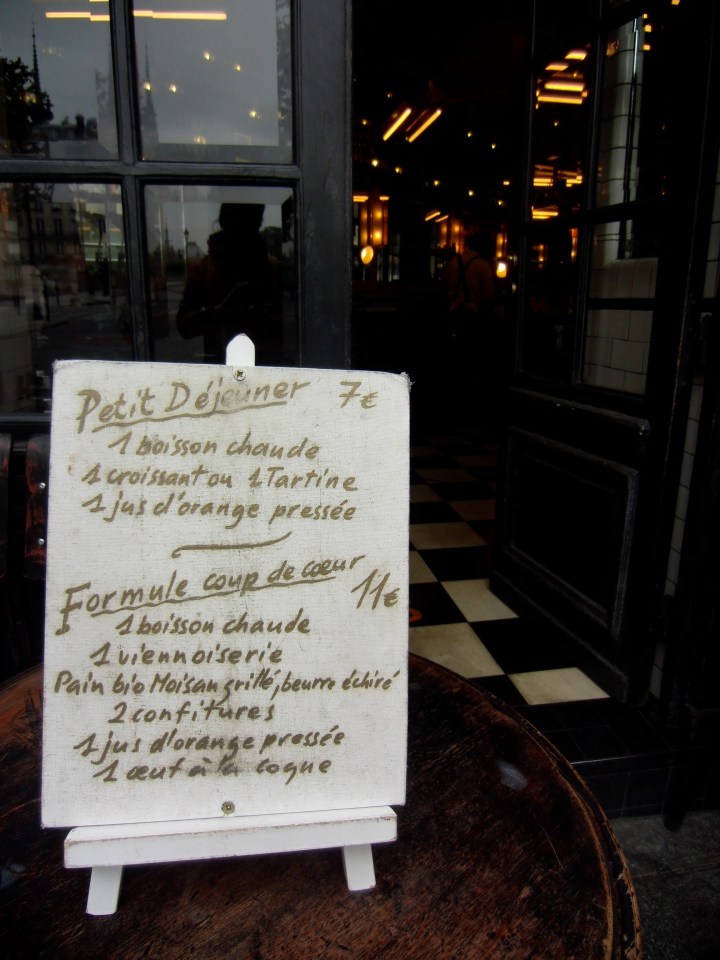 Petit Déjeuner 7€
1 boisson chaude
1 croissant ou 1 Tartine
1 jus d'orange pressée
Formule coup de cœur 11€
1 boisson chaude
1 viennoiserie
Pain bio Moisan grillé, beurre échiré
2 confitures
1 jus d'orange pressée
1 œuf à la coque